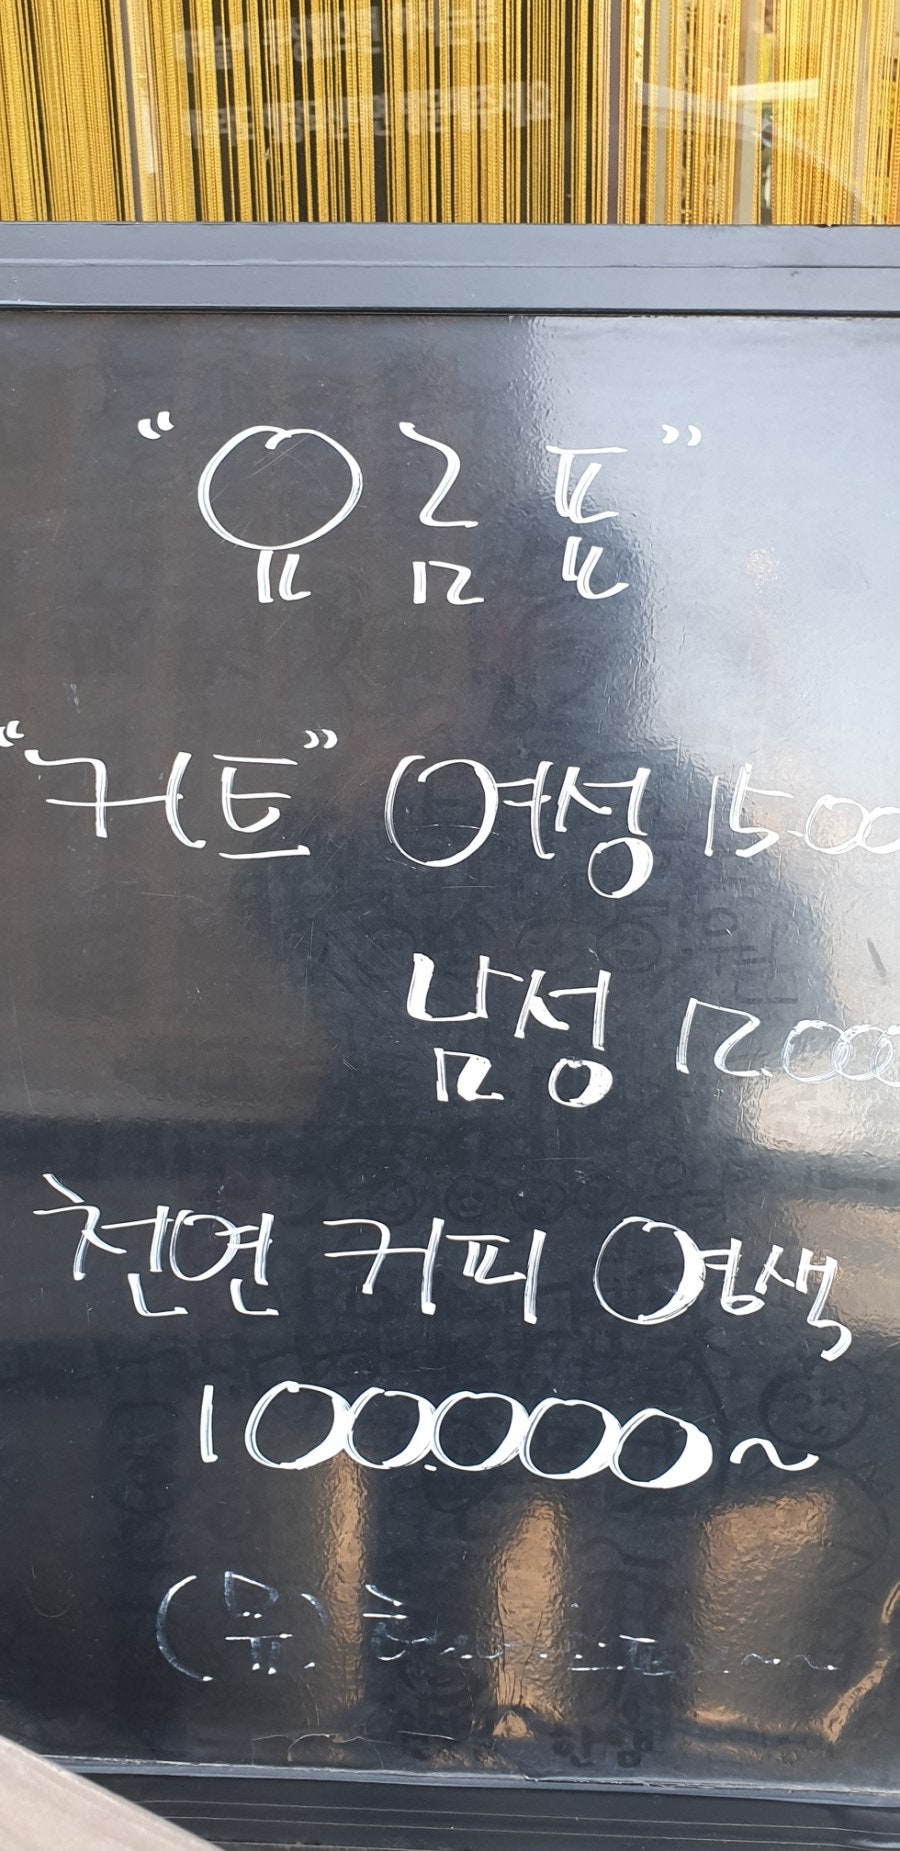 "요금표"
"커트" 여성 15.000
남성 12.000
천연 커피 염색
100.000~